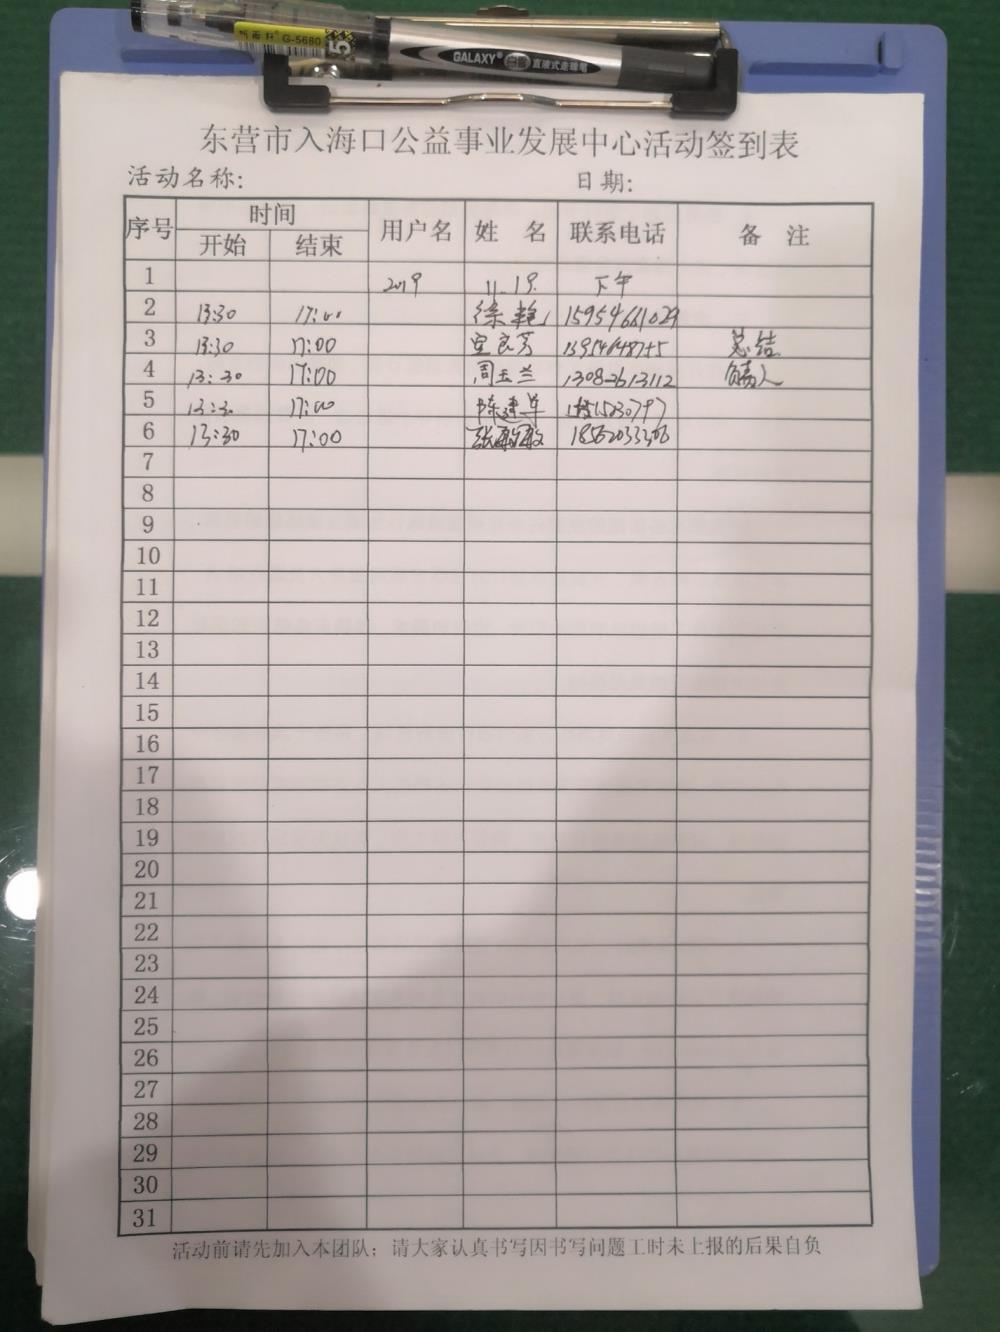 G-5680
5
GALAXY
直液式走珠笔
东营市入海口公益事业发展中心活动签到表
活动名称: 日期:
序号 时间 用户名 姓 名 联系电话 备 注
开始 结束
1 2019 11.19. 下午
2 13:30 17:00 徐艳 15954661029
3 13:30 17:00 总结
4 13:30 17:00 周玉兰 13082613112
5 13:30 17:00 陈建华
6 13:30 17:00 18562033306
7
8
9
10
11
12
13
14
15
16
17
18
19
20
21
22
23
24
25
26
27
28
29
30
31
活动前请先加入本团队；请大家认真书写因书写问题工时未上报的后果自负